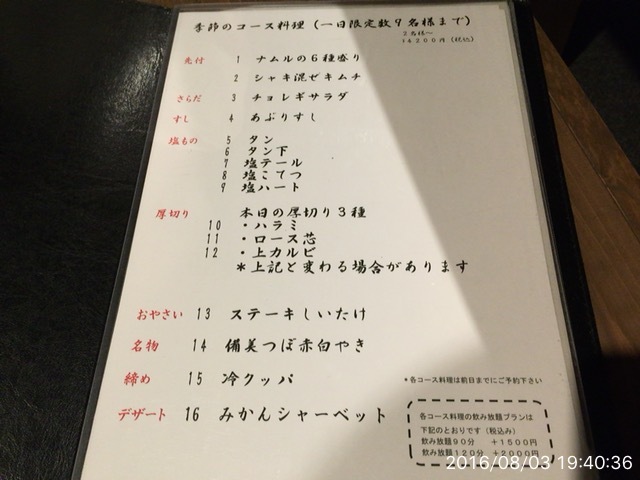 季節のコース料理(一日限定数9名様まで)
2名様〜
14200円(税込)
先付 1 ナムルの6種盛り
2 シャキ混ぜキムチ
さらだ 3 チョレギサラダ
すし 4 あぶりすし
塩もの 5 タン
6 タン下
7 塩テール
8 塩こてつ
9 塩ハート
厚切り 本日の厚切り3種
10 ・ハラミ
11 ・ロース芯
12 ・上カルビ
*上記と変わる場合があります
おやさい 13 ステーキしいたけ
名物 14 備美つぼ赤白やき
締め 15 冷クッパ
*各コース料理は前日までにご予約下さい
デザート 16 みかんシャーベット
各コース料理の飲み放題プランは
下記のとおりです(税込み)
飲み放題90分 +1500円
飲み放題120分 +2000円
2016/08/03 19:40:36